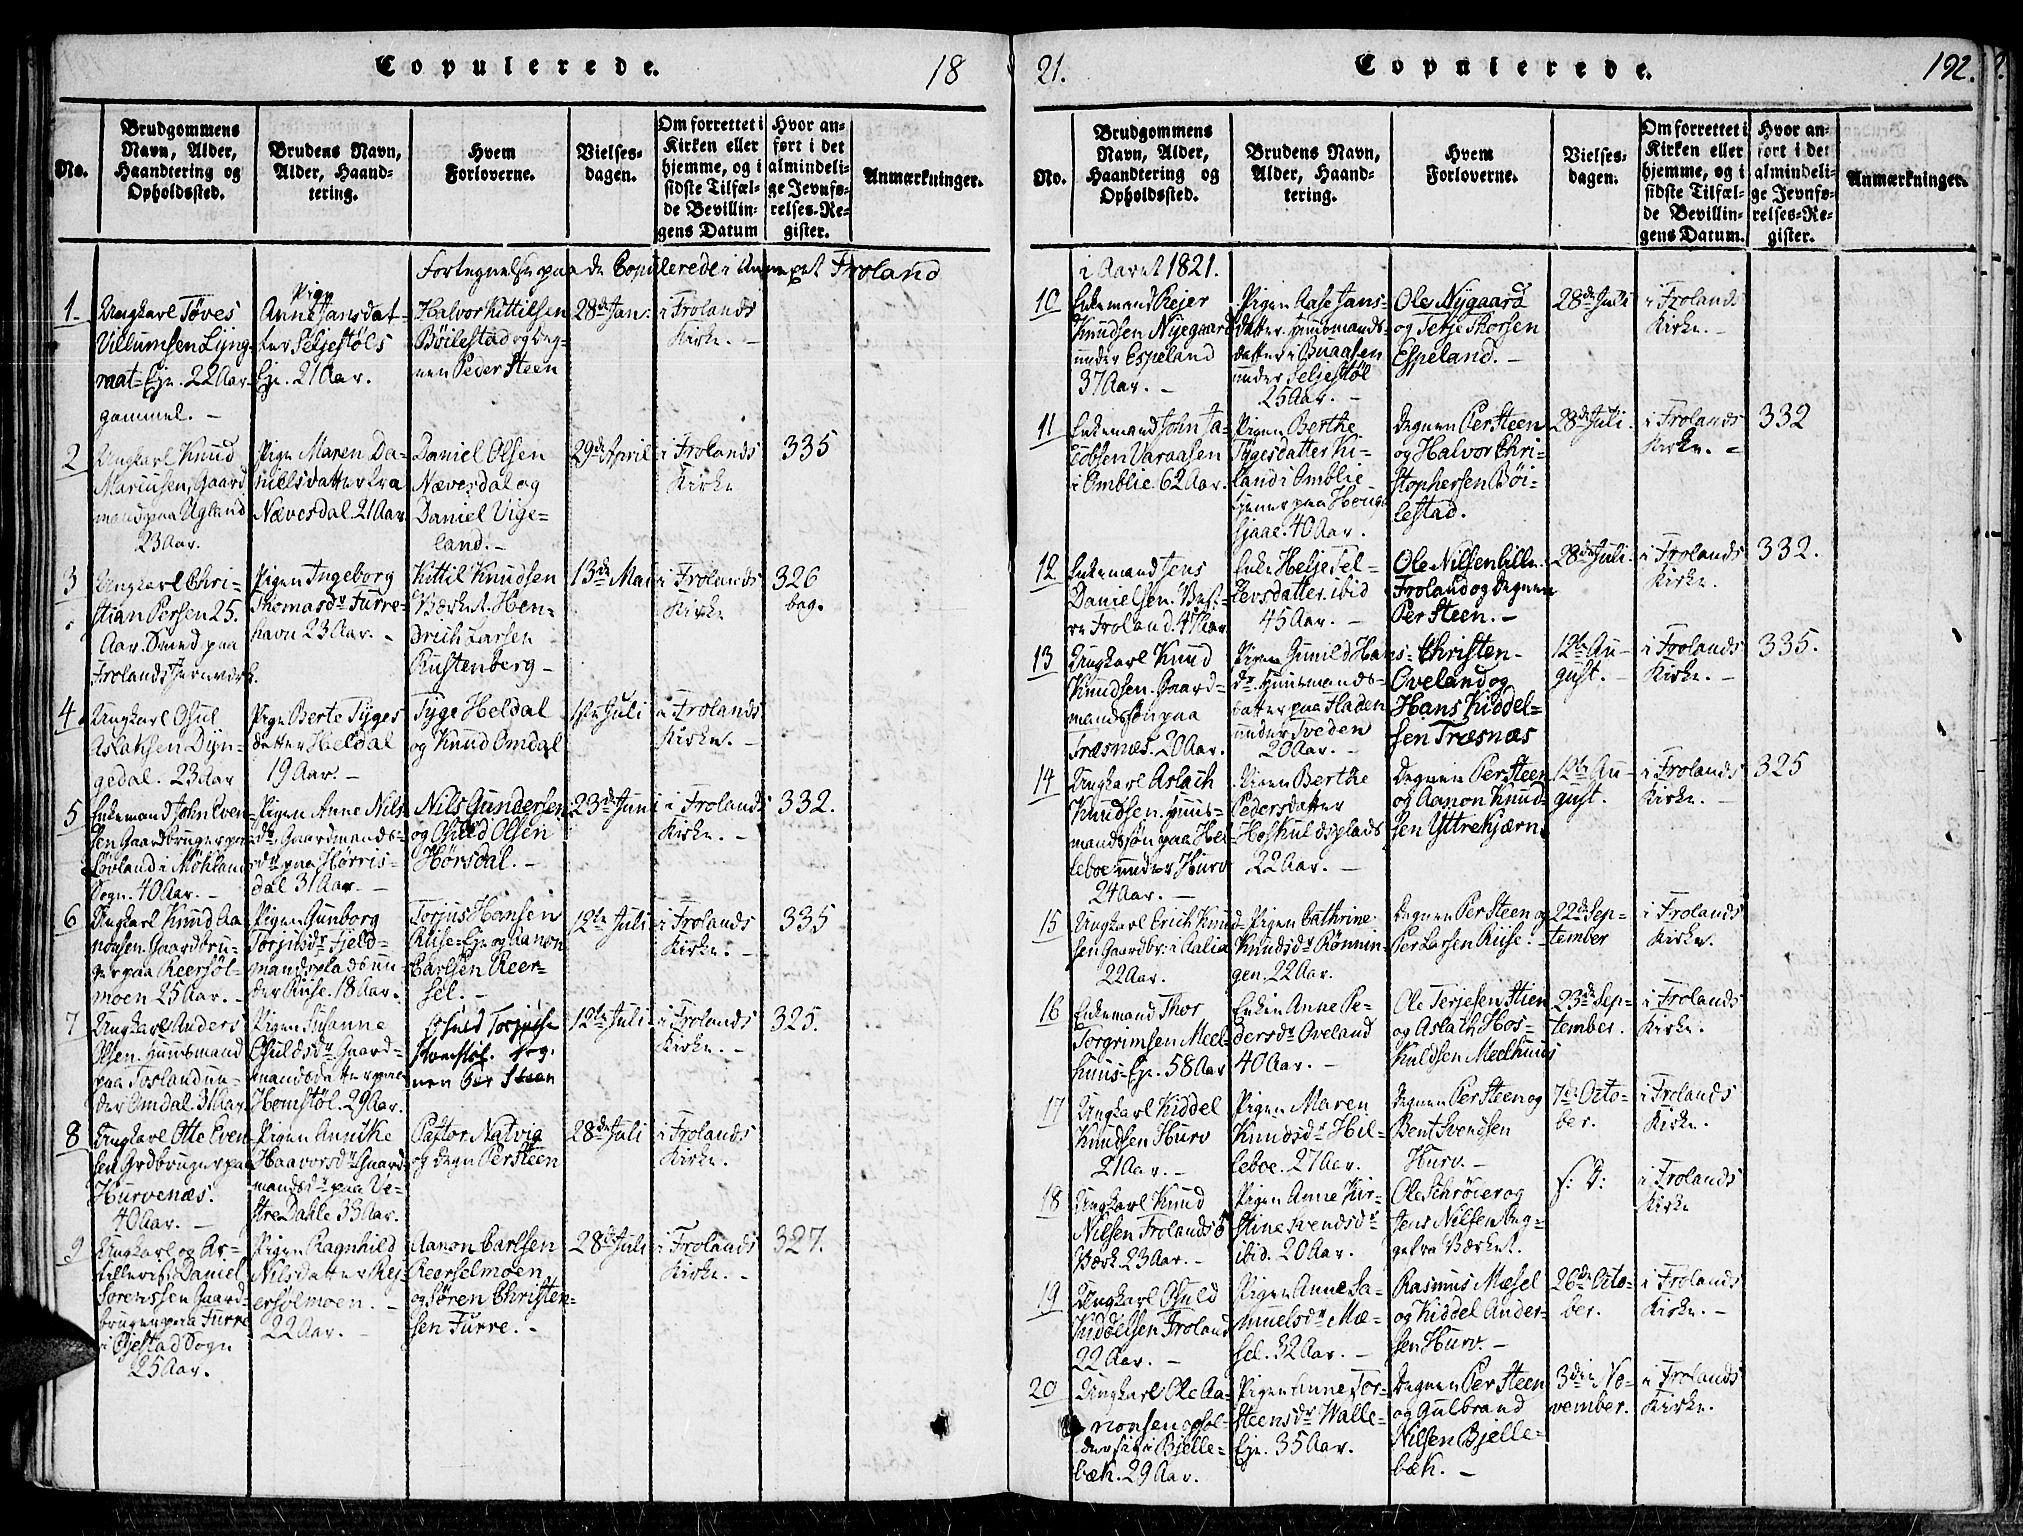 Copulerede. 18
No.
Brudgommens
Navn, Alder,
Haandtering og
Opholdssted.
Brudens Navn,
Alder, Haand-
tering.
Hvem
Forloverne.
Vielses-
dagen.
Om forrettet i
Kirken eller
hjemme, og i
sidste Tilfæl-
de Bevillin-
gens Datum
Hvor an-
ført i det
almindeli-
ge Jevnfø-
relses-Re-
gister.
Anmærkninger.
Fortegnelse paa de Copulerede i Annexet Froland
1.
Ungkarl Töves
Villumsen Lyng-
raat-Eje. 22 Aar
gammel. —
Pige
Anne Jansdat-
ter Seljestöls
Eje. 21 Aar.
Halvor Kittilsen
Böilestad og Deg-
nen Peder Steen
28de Jan:
i Frolands
Kirke. —
2
Ungkarl Knud
Mariusen, Gaard
mand paa Ugland
23 Aar.
Pige Maren Da-
nielsdatter fra
Næversdal. 21 Aar
Daniel Olsen
Næversdal og
Daniel Vige-
land. —
29de April
i Frolands
Kirke
335
3
Ungkarl Chri-
stian Persen 25.
Aar. Smed paa
Frolands Jernværk.
Pigen Ingeborg
Thomasdr Furre-
havn 23 Aar. —
Kittil Knudsen
Værket. Hen-
drich Larsen
Rustenberg —
13de Mai
i Frolands
Kirke
326
bag.
4.
Ungkarl Osul
Aslaksen Dyn-
gedal. 23 Aar
Pige Berte Tyges
datter Heldal
19 Aar. —
Tyge Heldal
og Knud Omdal
1ste Juli
i Frolands
Kirke. —
5
Enkemand John Even-
sen Gaardbruger paa
Lövland i Möklands
Sogn. 40 Aar. —
Pigen Anne Nils
dr Gaardmands-
dr paa Hörris-
dal 31 Aar. —
Nils Gundersen
og Osuld Olsen
Hörsdal. —
23de Juni
i Frolands
Kirke. —
332.
6
Ungkarl Knud Aa-
nonsen. Gaardbru-
ger paa Reersöl-
moen 25 Aar. —
Pigen Gunborg
Torjusdr Fjeld-
mandsplads un-
der Riise. 18 Aar.
Torjus Hansen
Riise-Eje og Aanon
Carlsen Reer-
sel. —
12te Juli
i Frolands
Kirke. —
335
7
Ungkarl Anders
Olsen. Huusmand
paa Tosland un-
der Omdal. 31 Aar
Pigen Susanne
Osuldsdr Gaard-
mandsdatter paa
Homstöl. 29 Aar.
Osuld Torjuse
Homstöl. Deg-
nen Per Steen
12te Juli
i Frolands
Kirke. —
325.
8
Ungkarl Otte Even-
sen Grdbruger paa
Hurvenæs.
40 Aar. —
Pigen Annike
Haavorsdr Gaard-
mandsdr paa Ve-
stre Dahle 33 Aar.
Pastor Natvig
og Degn Per Steen
28de Juli
i Frolands
Kirke.
9
Ungkarl og Ar-
tillerist Daniel
Sörenssen Gaard-
bruger paa Furre
i Öjestad Sogn
25 Aar.
Pigen Ragnhild
Nilsdatter Rej-
ersölmoen. —
22 Aar. —
Aanon Carlsen
Reerselmoen
og Sören Christen-
sen Furre. —
28de Juli
i Frolands
Kirke. —
327.
21. Copulerede. 192.
No.
Brudgommens
Navn, Alder,
Haandtering og
Opholdssted.
Brudens Navn,
Alder, Haand-
tering.
Hvem
Forloverne.
Vielses-
dagen.
Om forrettet i
Kirken eller
hjemme, og i
sidste Tilfæl-
de Bevillin-
gens Datum.
Hvor an-
ført i det
almindeli-
ge Jevnfø-
relses-Re-
gister.
Anmærkninger.
i Aaret 1821.
10
Enkemand Rejer
Knudsen Nyegaard
under Espeland
37 Aar. —
Pigen Aase Jans-
datter. Huusmands-
datter i Buaasen
under Seljestöl
25 Aar. —
Ole Nygaard
og Terje Thorsen
Espeland. —
28de Juli
i Frolands
Kirke. —
11
Enkemand John Ja-
cobsen Varaasen
i Omblie. 62 Aar.
Pigen Berthe
Tygesdatter Ki-
land i Omblie
tjener paa Houge
Sjaae. 40 Aar.
Degnen Per Steen
og Halvor Chri-
stophersen Böi-
lestad.
28de Juli.
i Frolands
Kirke. —
332
12
Enkemand Jens
Danielsen. Vest-
re Froland. 47 Aar
Enke Helje Tel-
levsdatter. ibid
45 Aar. —
Ole Nilsen Lille
Froland og Degnen
Per Steen. —
28de Juli.
i Frolands
Kirke.
332.
13
Ungkarl Knud
Knudsen. Gaard-
mandssön paa
Træsnæs. 20 Aar.
Pigen Gunild Hans-
dr. Huusmands-
datter paa Fladen
under Tveden
20 Aar. —
Christen
Oveland og
Hans Kiddel-
sen Træsnæs
12te Au-
gust. —
i Frolands
Kirke. —
335.
14
Ungkarl Aslach
Knudsen. Huus-
mandssön paa Hel-
leboe under Hurv
24 Aar. —
Pigen Berthe
Pedersdatter
Hoskuldsplads
22 Aar. —
Degnen Per Steen
og Aanon Knud-
sen Yttrekjærn.
12te Au-
gust.
i Frolands
Kirke. —
325
15
Ungkarl Erich Knud-
sen Gaardbr. i Aalia
22 Aar.
Pigen Cathrine
Knudsdr Rönnin-
gen. 22 Aar.
Degnen Per Steen og
Per Larsen Riise. —
22de Sep-
tember
i Frolands
Kirke.
16
Enkemand Thor
Torgrimsen Meel-
huus-Eje. 58 Aar
Enken Anne Pe-
dersdr Oveland
40 Aar. —
Ole Terjesen Stien
og Aslach Hos-
kuldsen Meelhuus
23de Sep-
tember.
i Frolands
Kirke.
17
Ungkarl Kiddel
Knudsen Hurv
21 Aar. —
Pigen Maren
Knudsdr Hil-
leboe. 27 Aar.
Degnen Per Steen og
Bent Svendsen
Hurv. —
7de Octo-
ber.
i Frolands
Kirke.
18
Ungkarl Knud
Nilsen Frolands
Værk. 23 Aar. —
Pigen Anne Kir-
stine Svendsdr
ibid. 20 Aar.
Ole Schröier og
Jens Nilsen beg-
ge fra Værket.
i Frolands
Kirke
19
Ungkarl Osuld
Kiddelsen Froland
22 Aar. —
Pigen Anne Sa-
muelsdr Mæ-
sel. 32 Aar. —
Rasmus Mæsel
og Kiddel Ander-
sen Hurv. —
26de Octo-
ber.
i Frolands
Kirke. —
20
Ungkarl Ole Aa-
nonsen ophol-
der sig i Bjelle-
bæk. 29 Aar.
Pigen Anne Tor-
steensdr Walle-
Eje. 35 Aar.
Degnen Per Steen
og Gulbrand
Nilsen Bjelle-
bæk. —
3die No-
vember.
i Frolands
Kirke. —